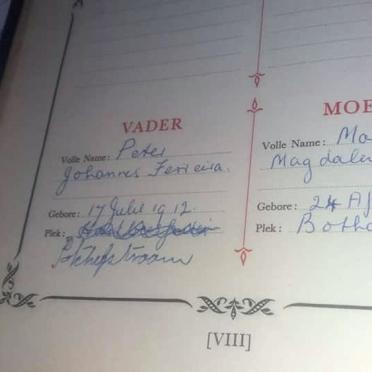 VADER
Volle Name: Peter
Johannes Ferreira.
Gebore: 17 Julie 1912.
Plek:
Potchefstroom
MOE
Volle Name: Ma
Magdale
Gebore: 24 Ap
Plek: Botha
[VIII]